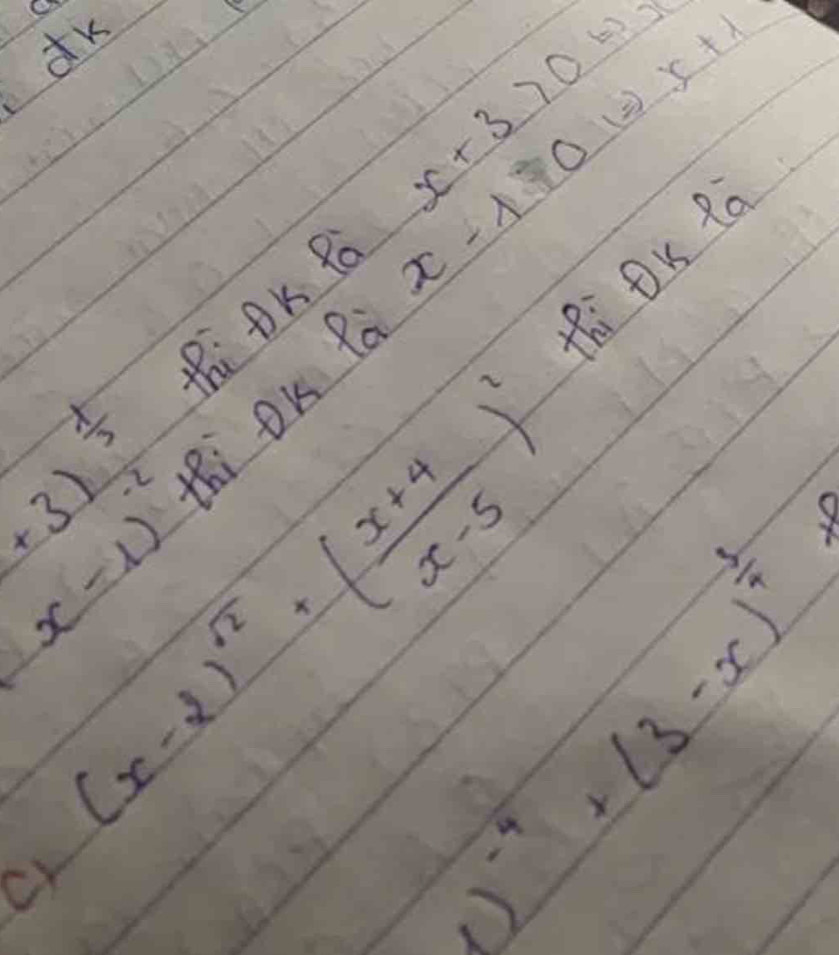 dk
+3)^{1/3} thì ĐK là x+3>0 ⇔ x
x-1)^{-2} thì ĐK là x-1≠0 ⇔ x≠1
c) (x-2)^{√2} + (\frac{x+4}{x-5})^2 thì ĐK là
1)^{-4} + (3-x)^{3/4}